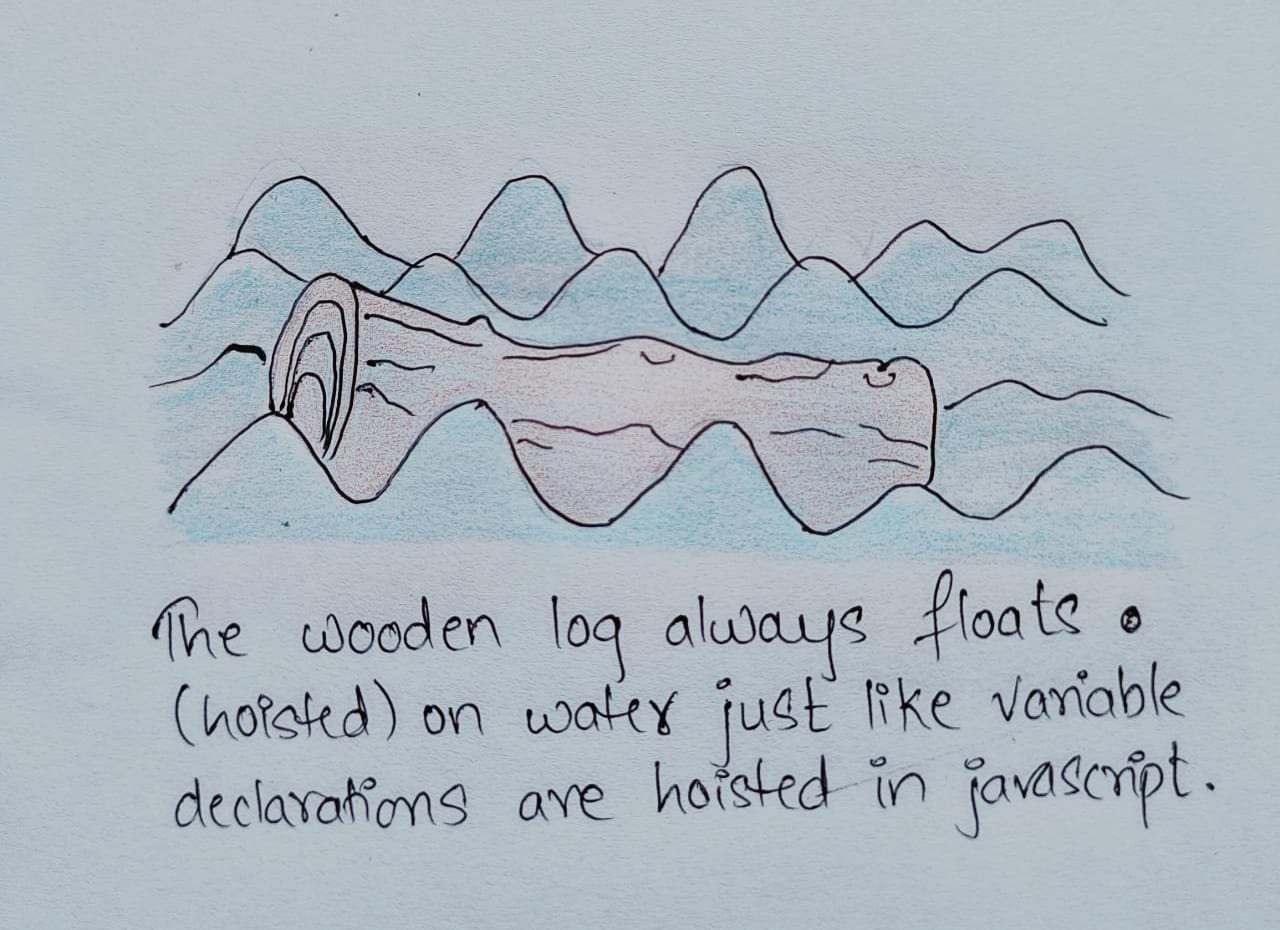 The wooden log always floats .
(hoisted) on water just like variable
declarations are hoisted in javascript.